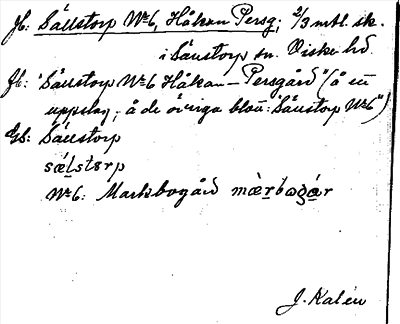 Jb: Sällstorp № 6, Håkan Persg; 2/3 mtl. sk.
i Sällstorp sn. Viske hd.
Jb: "Sällstorp № 6 Håkan-Persgård" (å ett
uppslag; å de övriga blott: "Sällstorp № 6")
Gb: Sällstorp
sæ̀lstɵrp
№ 6: Markbogård mær̀bogár
J. Kalén